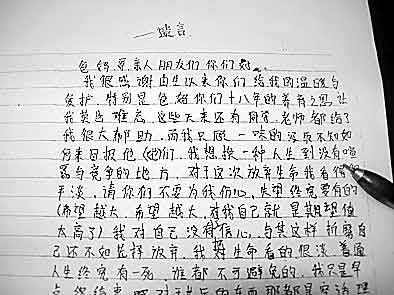 ——遗言
爸妈亲人朋友们你们好
我很感谢由生以来你们给我的温暖与
爱护, 特别是爸妈你们十八年的养育之恩让
我莫齿难忘 这些天来还有同学、老师都给了
我很大帮助, 而我只顾一味的 不知如
何来回报他(她)们, 我想换一种人生到没有喧
嚣与竞争的地方, 对于这次放弃生命我看得
平淡, 请你们不要为我伤心, 失望终究要有的
(希望越大, 希望越大, 对我自己就是期望值
太高了) 我对自己没有信心, 与其这样折磨自
己还不如选择放弃, 我对生命看的很淡 普通
人生终究有一死 谁都不可避免的, 我只是早